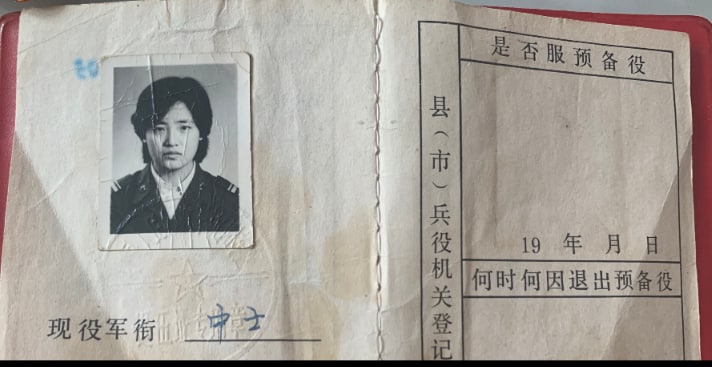 现役军衔 中士
县（市）兵役机关登记
是否服预备役
19 年 月 日
何时何因退出预备役